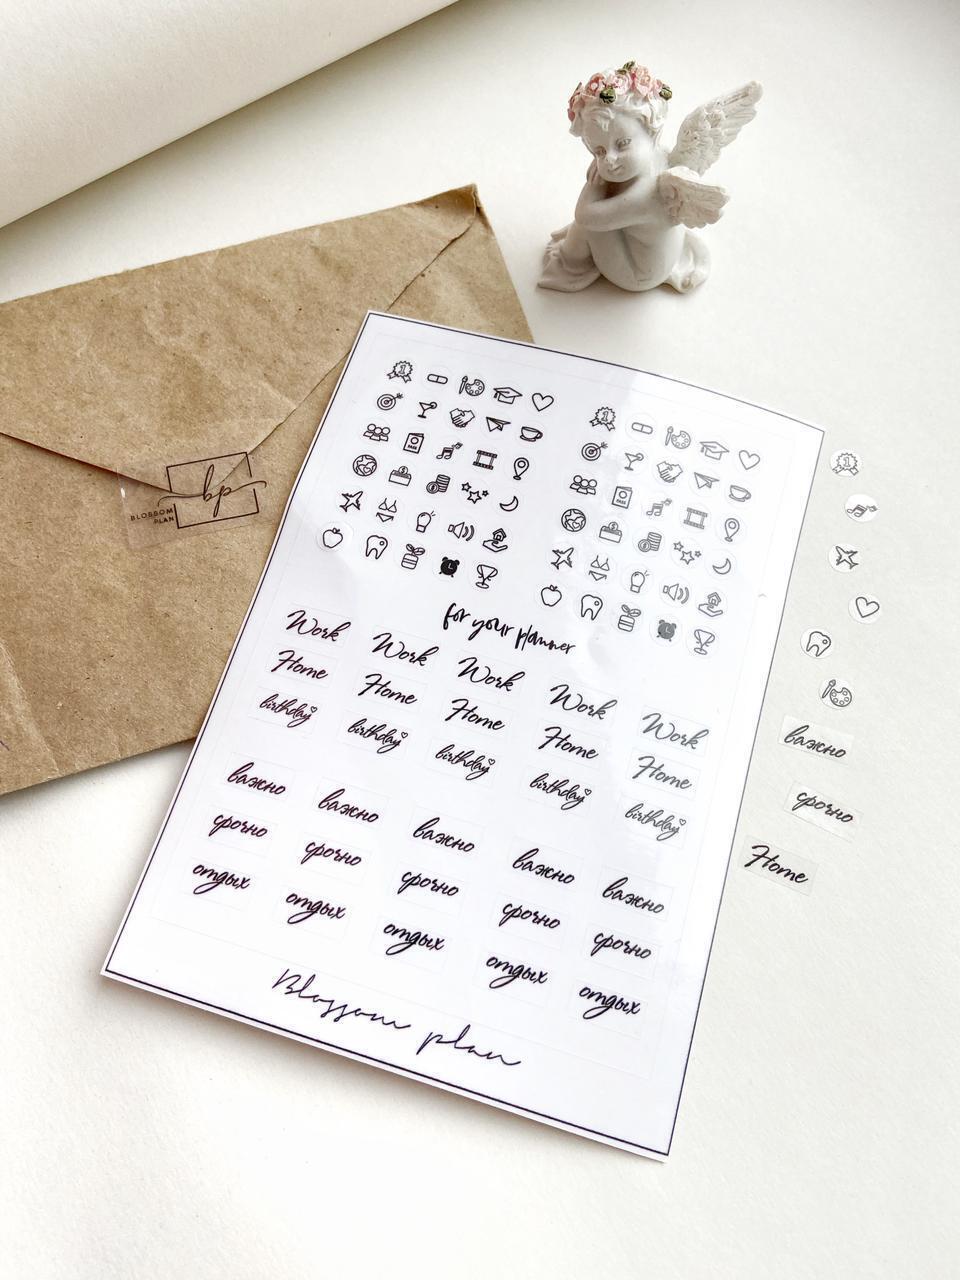 BLOSSOM
PLAN
bp
for your planner
Work Work Work Work Work
Home Home Home Home Home
birthday birthday birthday birthday birthday
важно важно важно важно важно
срочно срочно срочно срочно срочно
отдых отдых отдых отдых отдых
Blossom plan
1
1
1
важно
срочно
Home